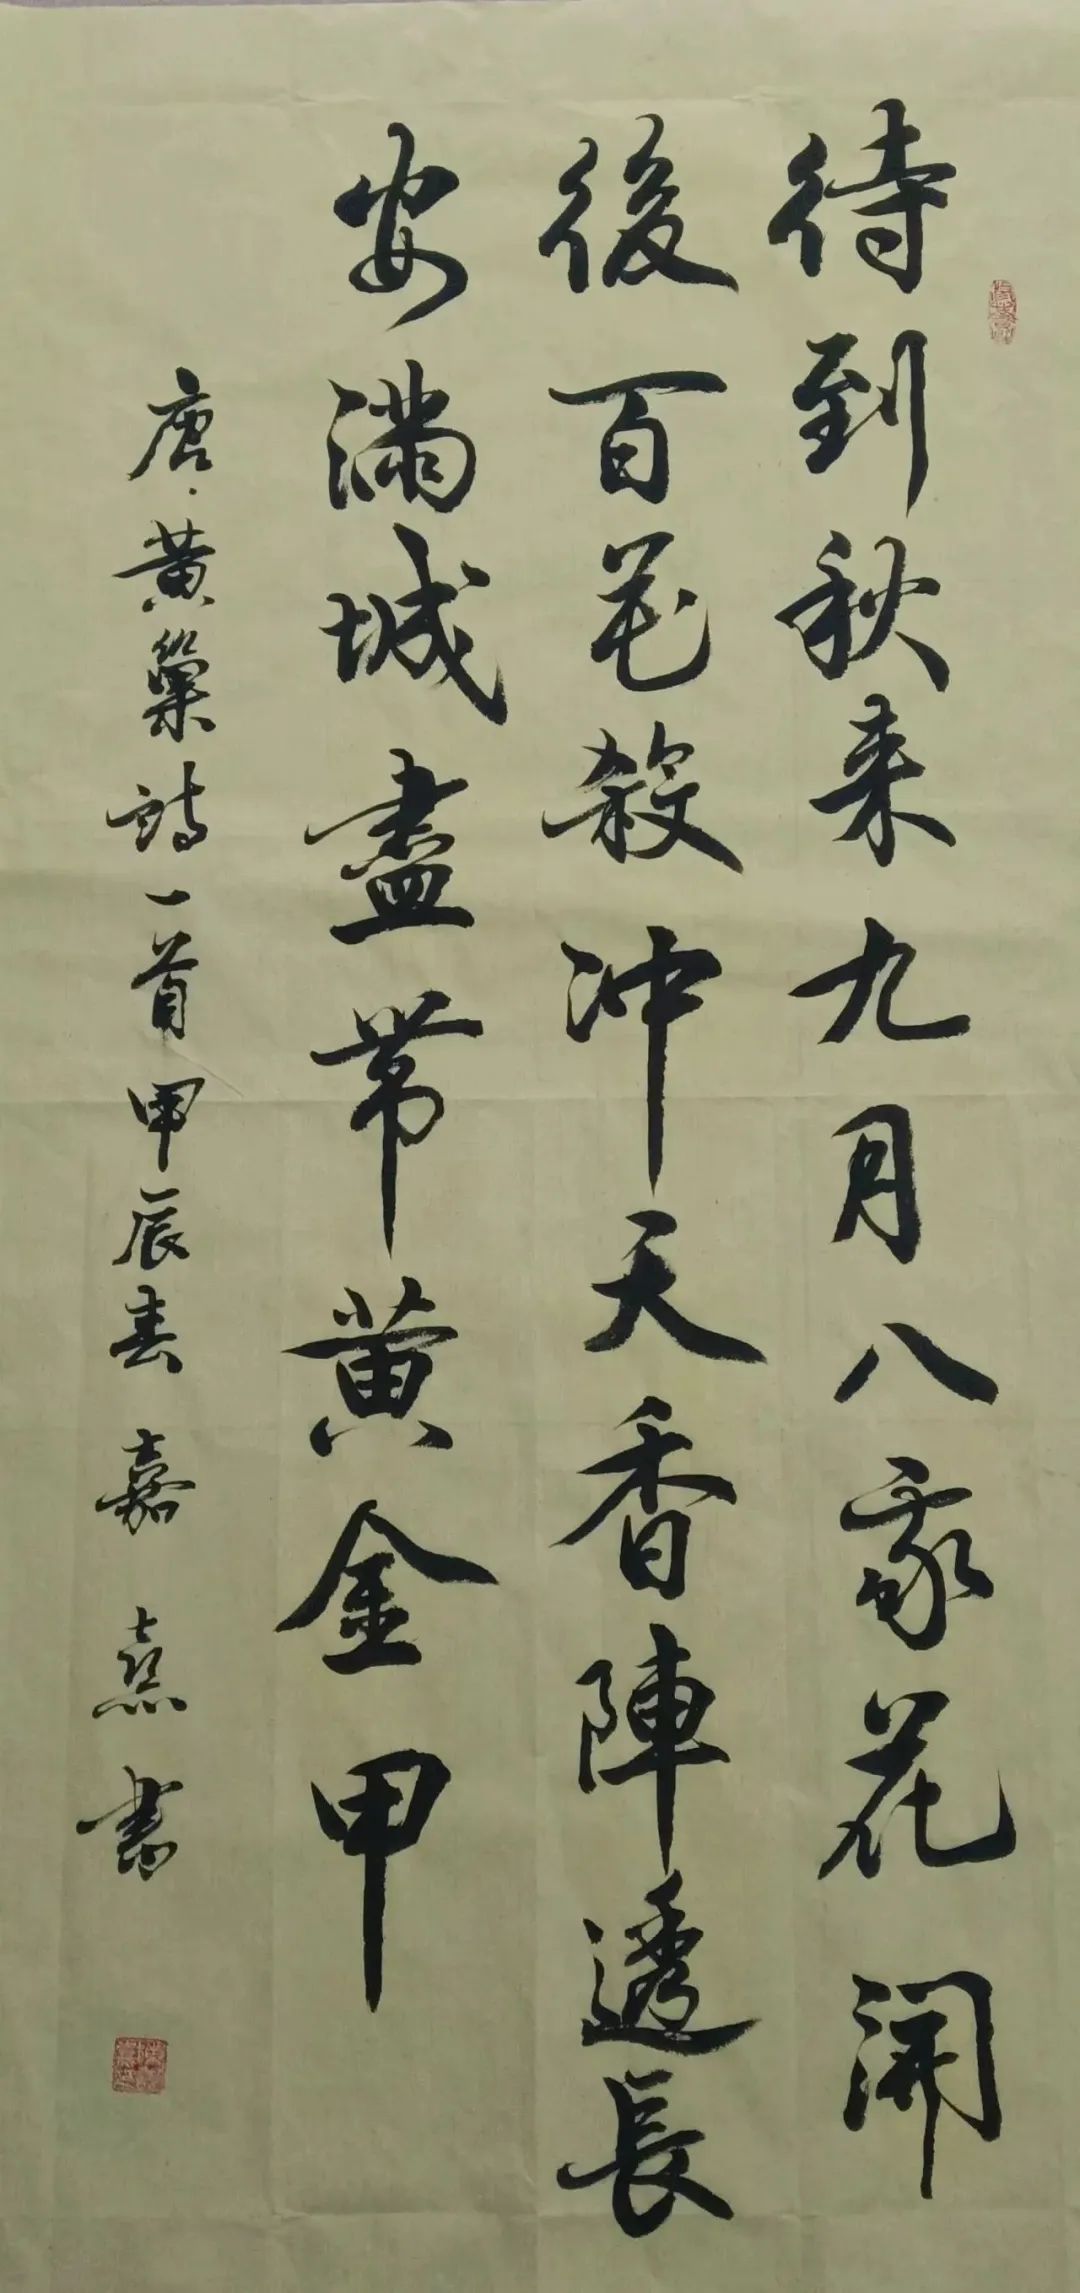 待到秋来九月八我花開
後百花殺冲天香陣透長
安滿城盡帶黄金甲
唐·黄巢詩一首甲辰春嘉熹書